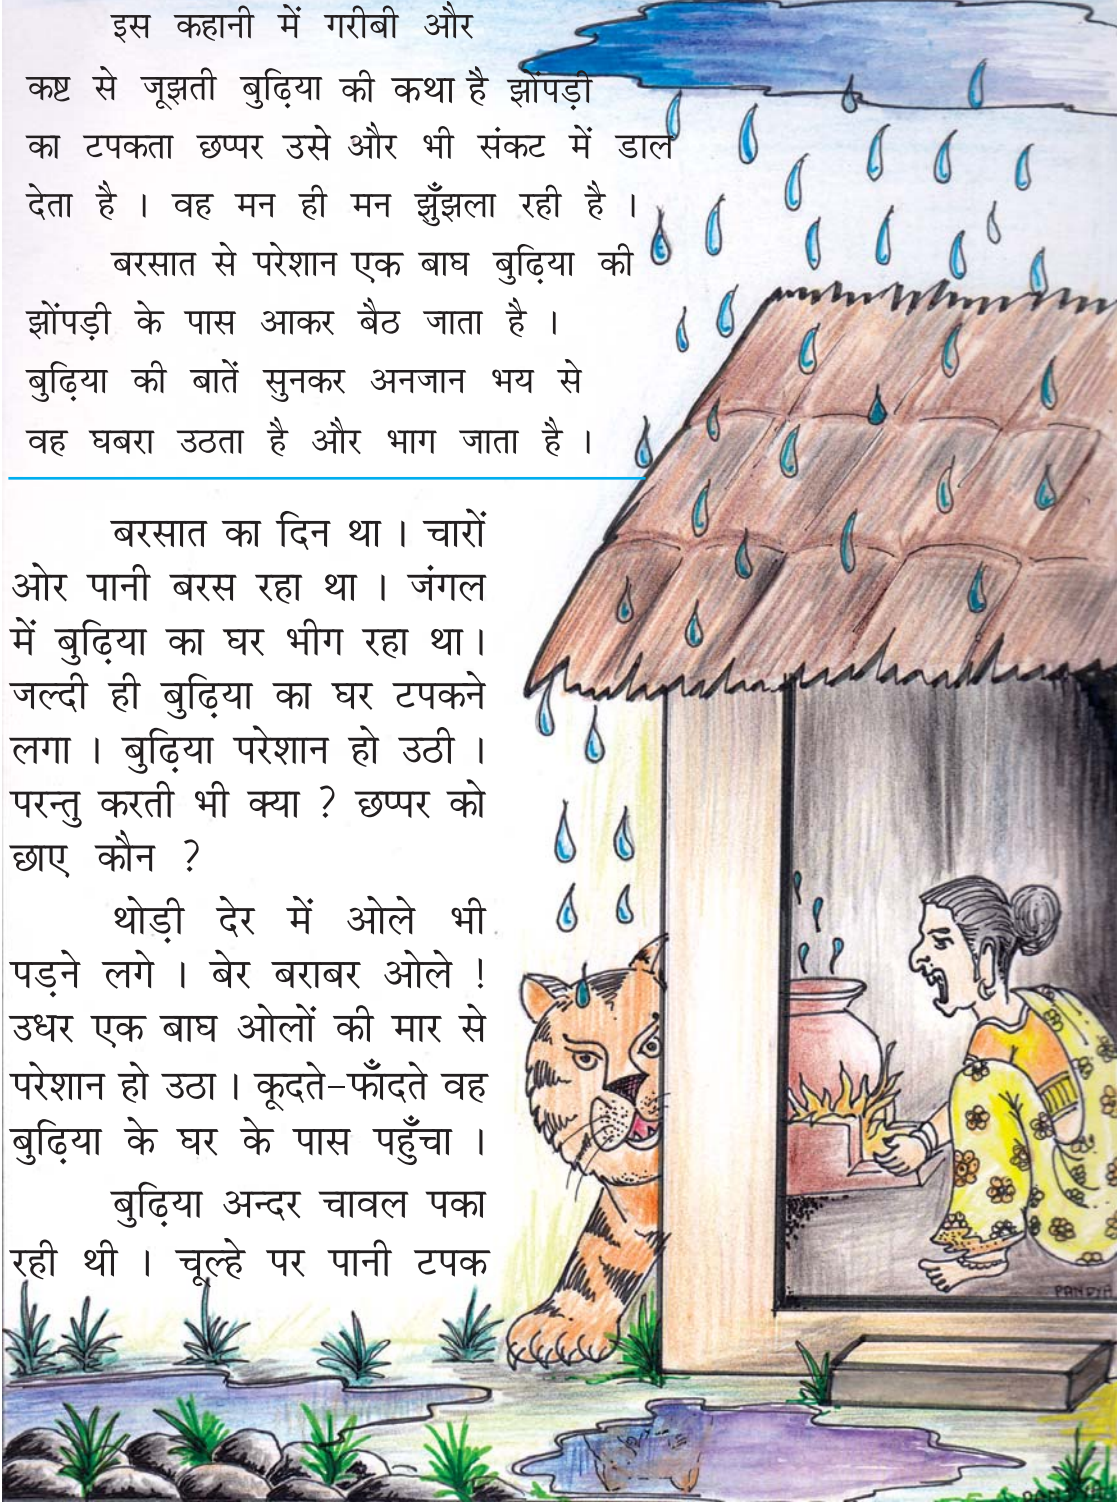 इस कहानी में गरीबी और
कष्ट से जूझती बुढ़िया की कथा है झोंपड़ी
का टपकता छप्पर उसे और भी संकट में डाल
देता है । वह मन ही मन झुँझला रही है ।
बरसात से परेशान एक बाघ बुढ़िया की
झोंपड़ी के पास आकर बैठ जाता है ।
बुढ़िया की बातें सुनकर अनजान भय से
वह घबरा उठता है और भाग जाता है ।
बरसात का दिन था । चारों
ओर पानी बरस रहा था । जंगल
में बुढ़िया का घर भीग रहा था।
जल्दी ही बुढ़िया का घर टपकने
लगा । बुढ़िया परेशान हो उठी ।
परन्तु करती भी क्या ? छप्पर को
छाए कौन ?
थोड़ी देर में ओले भी
पड़ने लगे । बेर बराबर ओले !
उधर एक बाघ ओलों की मार से
परेशान हो उठा । कूदते-फाँदते वह
बुढ़िया के घर के पास पहुँचा ।
बुढ़िया अन्दर चावल पका
रही थी । चूल्हे पर पानी टपक
PANDYA